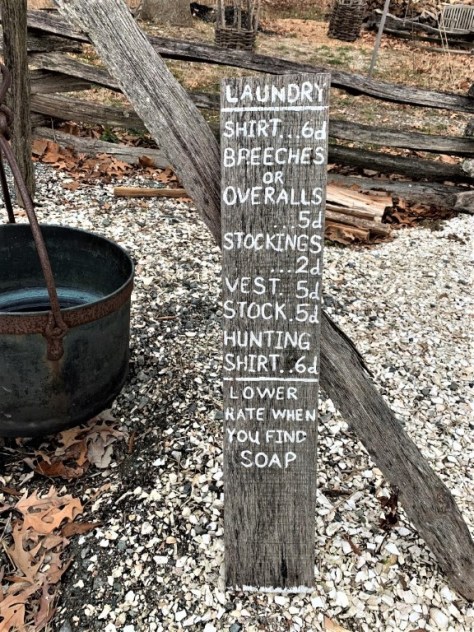 LAUNDRY
SHIRT...6d
BREECHES
OR
OVERALLS
...5d
STOCKINGS
...2d
VEST.5d
STOCK.5d
HUNTING
SHIRT..6d
LOWER
RATE WHEN
YOU FIND
SOAP